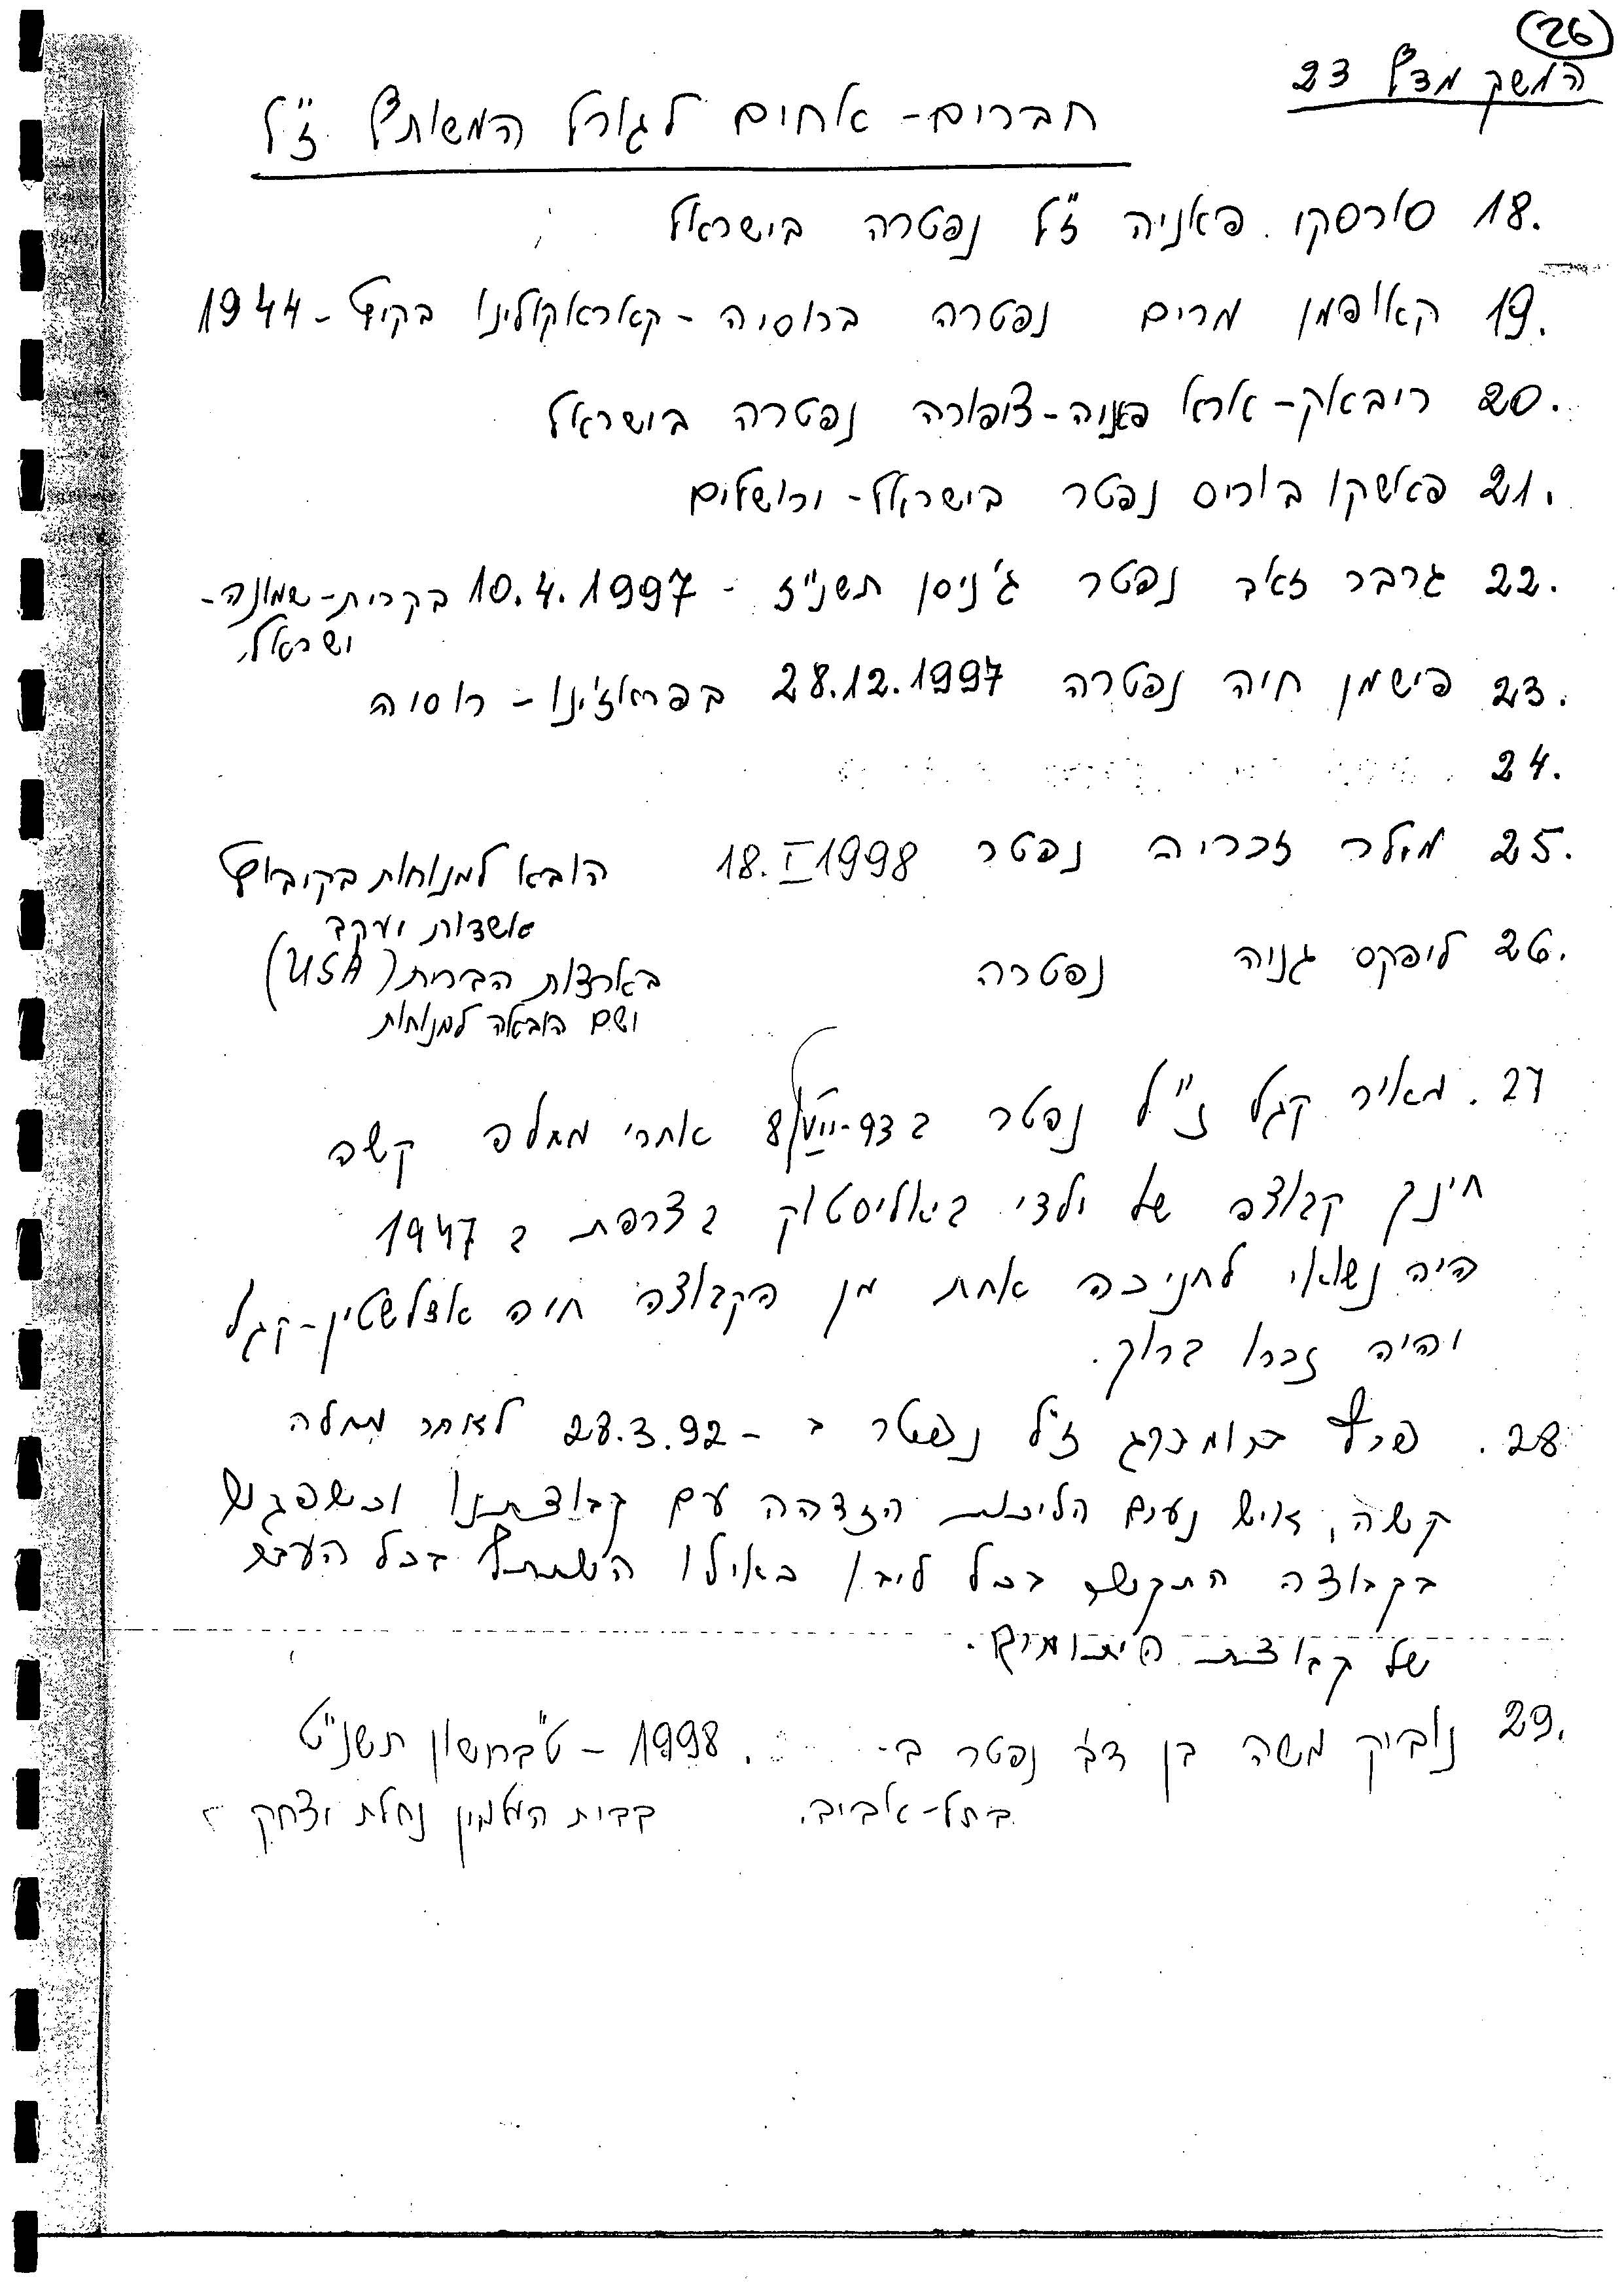 26
המשק מדף 23
חברים - אחים לגורל המשותף ז"ל
18. סורסקו פאניה ז"ל נפטרה בישראל
19. קאופמן מרים נפטרה ברוסיה - קאראקולינו בקיץ - 1944
20. ריבאק - אראו פאניה - ציפורה נפטרה בישראל
21. פאשקו בוריס נפטר בישראל - ירושלים
22. גרבר זאב נפטר ג' ניסן תשנ"ז - 10.4.1997 בקרית - שמונה -
ישראל
23. פישמן חיה נפטרה 28.12.1997 בפראז'ינו - רוסיה
24.
25. מילר זכריה נפטר 18.I 1998 הובא למנוחות בקיבוץ
אשדות יעקב
26. ליפקס גניה נפטרה בארצות הברית (USA)
ושם הובאה למנוחות
27. מאיר קגל ז"ל נפטר ב 8/VII-93 אחרי מחלה קשה
חינך קבוצה של ילדי ביאליסטוק בצרפת ב 1947
היה נשואי לחניכה אחת מן הקבוצה חיה אדלשטין - קגל
יהיה זכרו ברוך.
28. פרץ ברומברג ז"ל נפטר ב - 28.3.92 לאחר מחלה
קשה, איש נעים הליכות הזדהה עם קבוצתנו וכשפגש
בקבוצה התקשר בכל ליבו כאילו השתתף בכל העבר
של קבוצת היתומים.
29. נוביק משה בן דב נפטר ב - 1998 - ט"ב חשון תשנ"ט
בתל - אביב. בבית העלמין נחלת יצחק